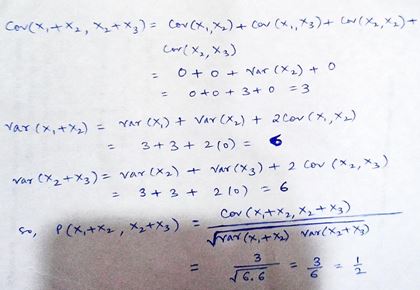 Cov(X₁+X₂, X₂+X₃) = Cov(X₁,X₂) + Cov(X₁,X₃) + Cov(X₂,X₂) +
Cov(X₂,X₃)
= 0 + 0 + Var(X₂) + 0
= 0 + 0 + 3 + 0 = 3
Var(X₁+X₂) = Var(X₁) + Var(X₂) + 2Cov(X₁,X₂)
= 3 + 3 + 2(0) = 6
Var(X₂+X₃) = Var(X₂) + Var(X₃) + 2 Cov(X₂,X₃)
= 3 + 3 + 2(0) = 6
so, P(X₁+X₂, X₂+X₃) = Cov(X₁+X₂, X₂+X₃) / √Var(X₁+X₂) Var(X₂+X₃)
= 3/√6.6 = 3/6 = 1/2